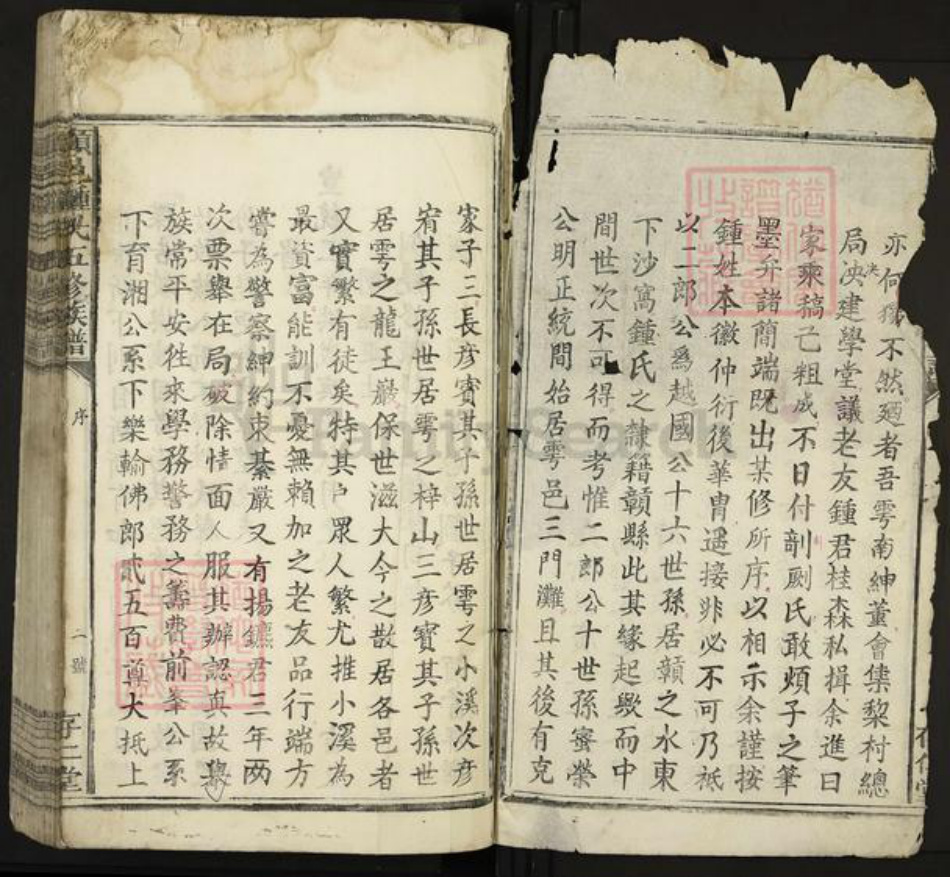 亦何獨不然廼者吾雩南紳董會集黎村總
局決泱建學堂議老友鍾君桂森私揖余進曰
家乘稿已粗成不日付剞劂氏敢煩子之筆
墨弁諸簡端既出某修所序以相示余謹按
鍾姓本徽仲衍後華胄遥接非必不可乃祗
以二郎公爲越國公十六世孫居贛之水東
下沙窩鍾氏之隸籍贛縣此其緣起歟而中
間世次不可得而考惟二郎公十世孫蜜榮
公明正統間始居雩邑三門灘且其後有克
家子三長彦賓其子孫世居雩之小溪次彦
宥其子孫世居雩之梓山三彦寶其子孫世
居雩之龍王巖保世滋大今之散居各邑者
又實繁有徒矣特其户眾人繁尤推小溪為
最資富能訓不憂無賴加之老友品行端方
嘗為警察紳約束綦嚴又有揚鑣君三年两
次票舉在局破除情面人服其辦認真故舉
族常平安徃來學務警務之籌費前峯公系
下育湘公系下樂輸佛郎貳五百尊大抵上
邑鍾氏五修族譜
序
二號
存仁堂